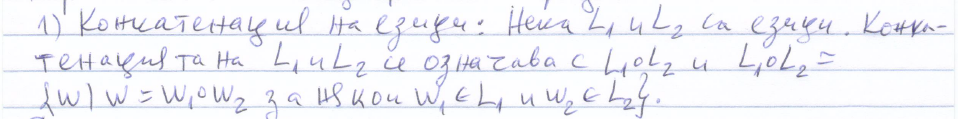 1) Конкатенация на езици: Нека L₁ и L₂ са езици. Конка-
тенацията на L₁ и L₂ се означава с L₁∘L₂ и L₁∘L₂ =
{w | w = w₁∘w₂ за някои w₁ ∈ L₁ и w₂ ∈ L₂}.